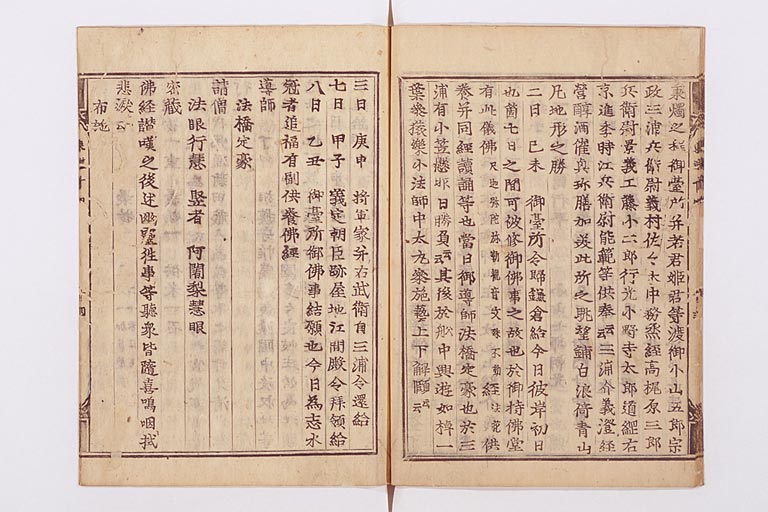 秉燭之程御臺所并若君姫君等渡御小山五郎宗
政三浦兵衛尉義村佐々木中務丞經高梶原三郎
兵衛尉景義工藤小二郎行光小野寺太郎道綱右
京進季時江兵衛尉能範等供奉云云三浦介義澄經
營醇酒催興珎膳加美此所之眺望鋪白浪倚青山
凡地形之勝
二日 己未 御臺所令歸鎌倉給今日彼岸初日
也箇七日之間可被修御佛事之故也於御持佛堂
有此儀佛 尺迦弥陀弥勒觀音文殊不動 經 法花 供
養并同經讀誦等也當日御導師法橋定豪也於三
浦有小笠懸昨日勝負云云其後於舩中興遊如棹一
葉參猿樂小法師中太丸參施藝上下解頤云云
三日 庚申 將軍家并右武衛自三浦令還給
七日 甲子 義定朝臣跡屋地江間殿令拜領給
八日 乙丑 御臺所御佛事結願也今日為志水
冠者追福有副供養佛經
導師
法橋定豪
請僧
法眼行慧 堅者 阿闍梨慧眼
密藏
佛經讃嘆之後述幽靈往事等聽衆皆隨喜嗚咽拭
悲涙云云
布施